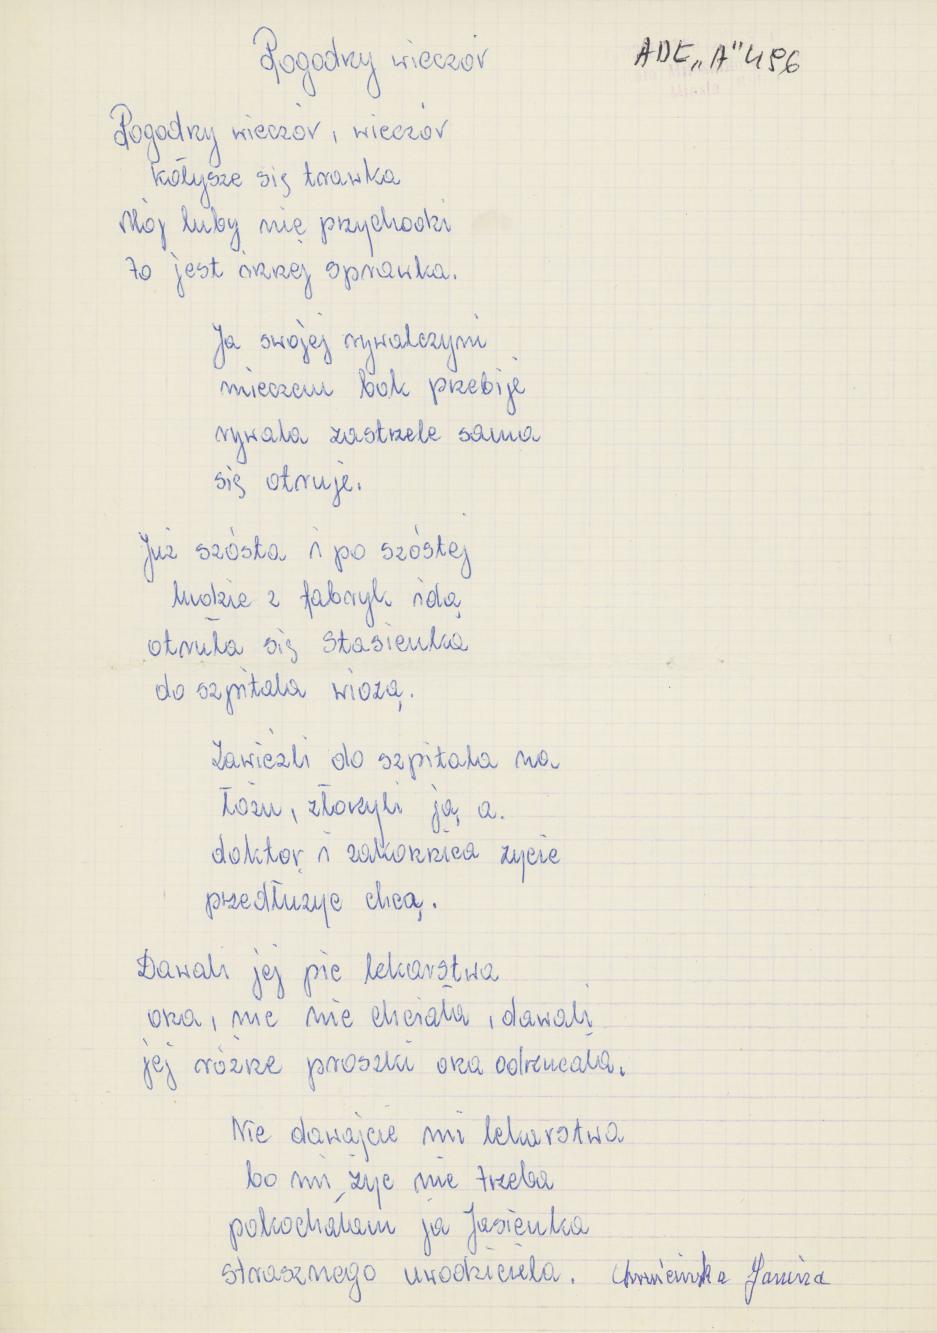 Pogodny wieczór
ADE „A" 456
Pogodny wieczór, wieczór
kołysze się trawka
Mój luby nie przychodzi
to jest innej sprawka.
Ja swojej rywalczyni
mieczem bok przebije
rywala zastrzele sama
się otruje.
Już szósta i po szóstej
ludzie z fabryk idą
otruła się Stasieńka
do szpitala wiozą.
Zawieźli do szpitala na
łożu, złożyli ją, a.
doktor i zakonnica życie
przedłużyc chcą.
Dawali jej pić lekarstwa
ona, nic nie chciała, dawali
jej różne proszki ona odrzucała.
Nie dawajcie mi lekarstwa
bo mi żyć nie trzeba
pokochałam ja Jasieńka
strasznego uwodziciela. Janina